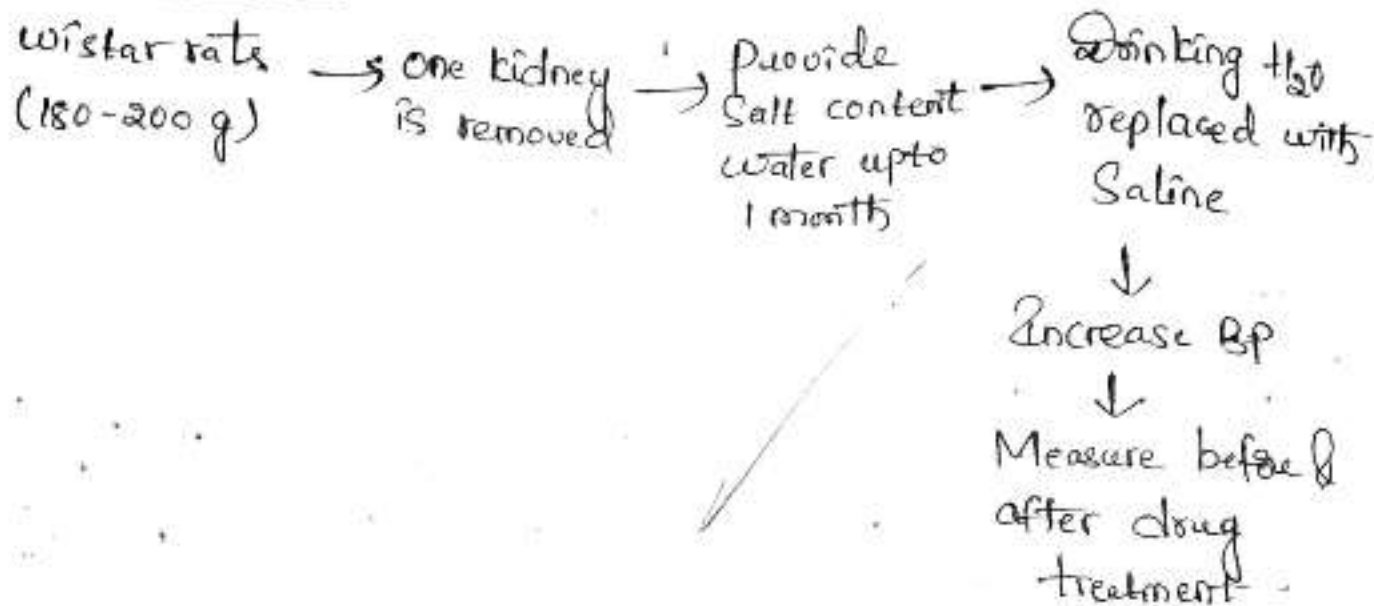 wistar rats
(180-200 g)
→ One kidney
is removed
→ Provide
Salt content
water upto
1 month
→ Drinking H₂O
replaced with
Saline
↓
Increase BP
↓
Measure before &
after drug
treatment